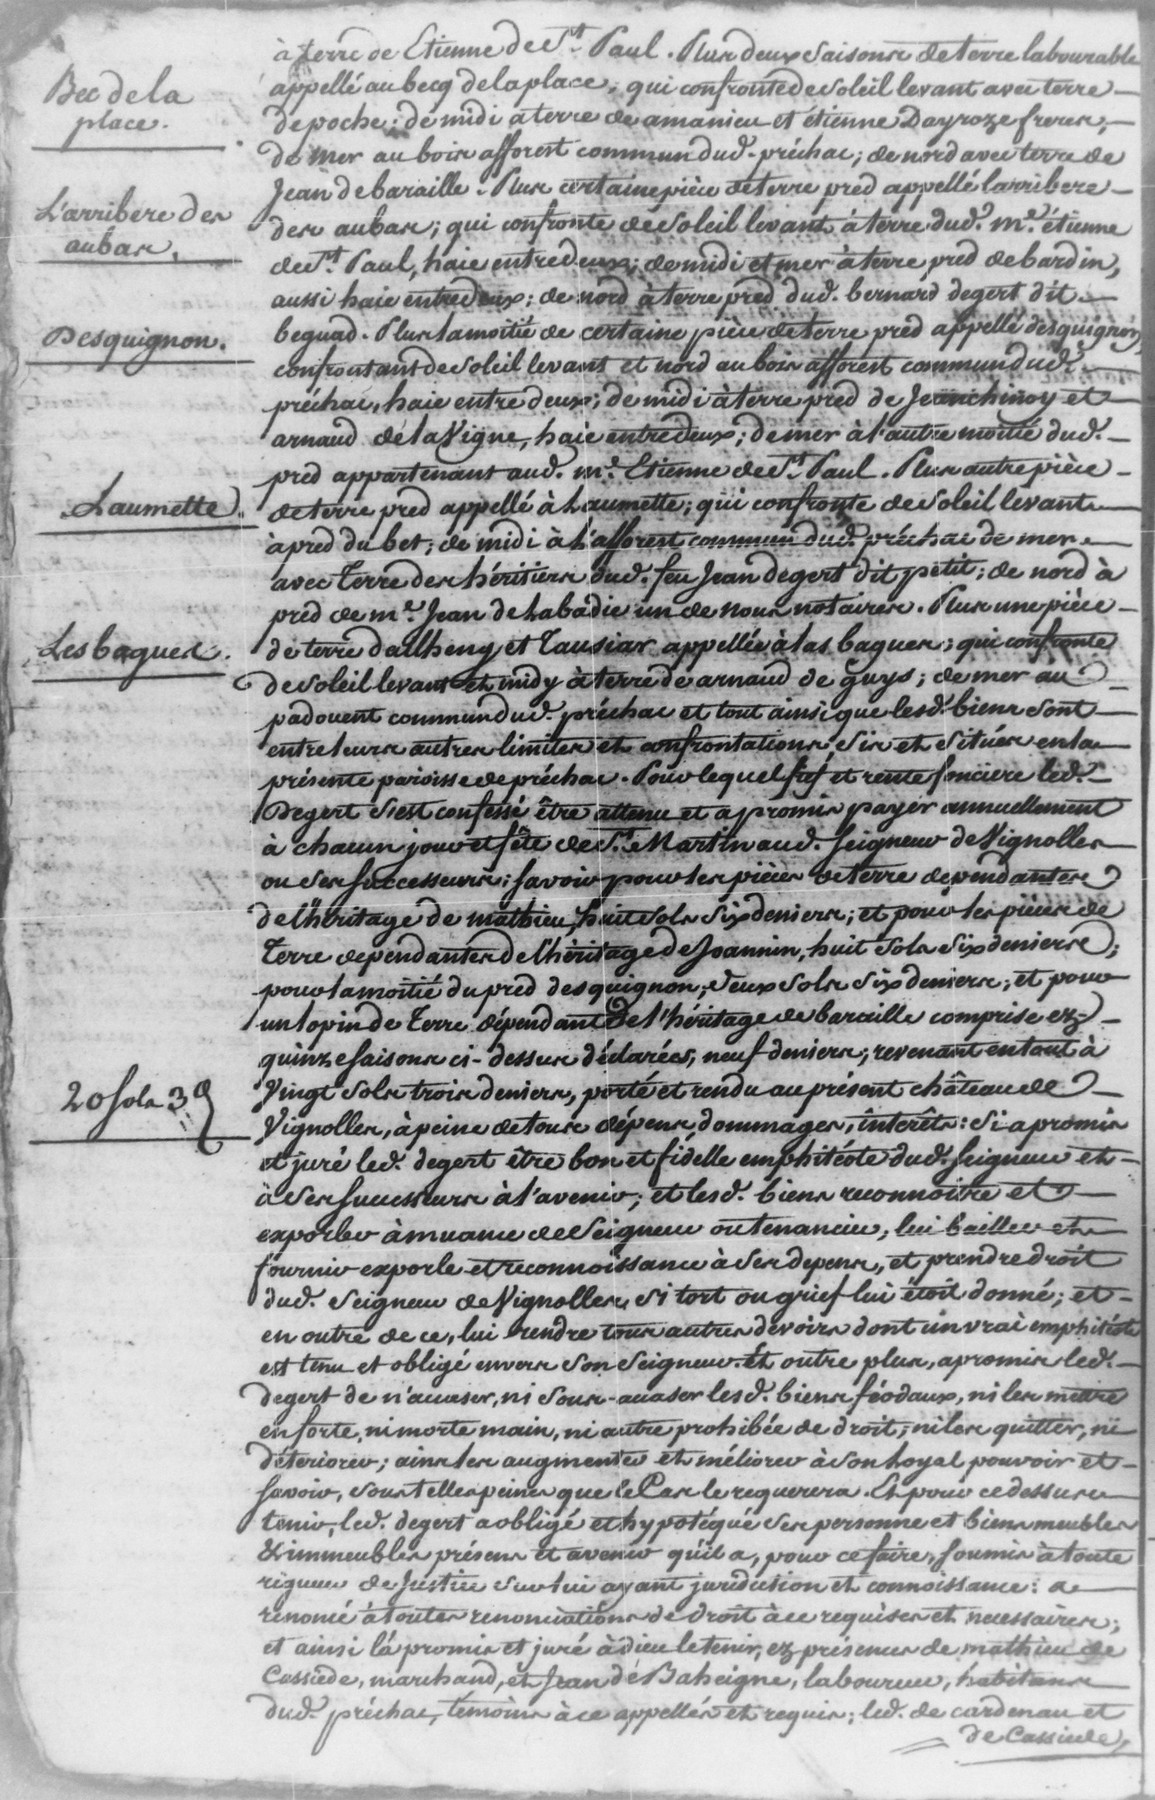 à terre de Etienne de St. Paul. Plus deux saisons de terre labourable
Bec de la
place.
appellé au becq de la place, qui confronte de soleil levant avec terre
de poche; de midi a terre de amanieu et étienne Dayroze freres,
de mer au bois afforest commun dud. préchac; de nord avec terre de
Jean de baraille. Plus certaine pièce de terre pred appellé larribere
L'arribere des
aubas.
des aubas; qui confronte de soleil levant à terre dud. me. étienne
de St. Paul, haie entre deux; de midi et mer à terre pred de bardin,
aussi haie entre deux; de nord à terre pred dud. bernard degert dit
Desquignon.
beguad. Plus la moitié de certaine pièce de terre pred appellé desquignon,
confrontant de soleil levant et nord au bois afforest commun dud.
préchac, haie entre deux; de midi à terre pred de Jeanchinoy et
arnaud de la Vigne, haie entre deux; de mer à l'autre moitié dud.
pred appartenant aud. me. Etienne de St. Paul. Plus autre pièce
Laumette.
de terre pred appellé à Laumette; qui confronte de soleil levant
à pred du bet; de midi à l'afforest commun dud. préchac de mer
avec terre des héritiers dud. feu Jean degert dit petit; de nord à
pred de me. Jean de Labadie un de nous notaires. Plus une pièce
Les bagues.
de terre dalheng et Tausiar appellée à las bagues; qui confronte
de soleil levant et midy à terre de arnaud de guys; de mer au
padouent commun dud. préchac et tout ainsi que lesd. biens sont
entre leurs autres limites et confrontations, sis et situés en la
présente paroisse de préchac. Pour lequel fief et rente fonciere led.
Degert s'est confessé être attenu et a promis payer annuellement
à chacun jour et fête de St. Martin aud. seigneur de Vignolles
ou ses successeurs; savoir pour les pièces de terre dependantes
de l'héritage de mathieu, huit sols six deniers; et pour les pièces de
terre dependantes de l'héritage de Joannin, huit sols six deniers;
pour la moitié du pred desquignon, deux sols six deniers; et pour
un lopin de terre dépendant de l'héritage de baraille comprise ez
quinze saisons ci-dessus déclarées, neuf deniers; revenant en tout à
20 sols 3 d
vingt sols trois deniers, porté et rendu au présent château de
Vignolles, à peine de tous dépens dommages, intérêts: Si a promis
et juré led. degert être bon et fidelle emphitéote dud. seigneur et
à ses successeurs à l'avenir; et lesd. biens reconnoitre et
exporler à muance de seigneur ou tenancier, lui bailler et
fournir exporle et reconnoissance à ses depens, et prendre droit
dud. seigneur de Vignolles, si tort ou grief lui étoit donné; et
en outre de ce, lui rendre tous autres devoirs dont un vrai emphitéote
est tenu et obligé envers son seigneur. Et outre plus, a promis led.
degert de n'acaser, ni sous-acaser lesd. biens féodaux, ni les mettre
en forte, ni morte main, ni autre prohibée de droit; ni les quitter, ni
déteriorer; ains les augmenter et méliorer à son loyal pouvoir et
savoir, sous telles peines que le cas le requerera. Et pour ce dessus
tenir, led. degert a obligé et hypotéqué ses personne et biens meubles
& immeubles présens et avenir qu'il a, pour ce faire, soumis à toute
rigueur de Justice sur lui ayant juridiction et connoissance: a
renoncé à toutes renonciations de droit à ce requises et necessaires;
et ainsi l'a promis et juré à dieu le tenir, ez présences de mathieu de
Cassiede, marchand, et Jean de Baheigne, laboureur, habitans
dud. préchac, témoins à ce appellés et requis; led. de cardenau et
de Cassiede,